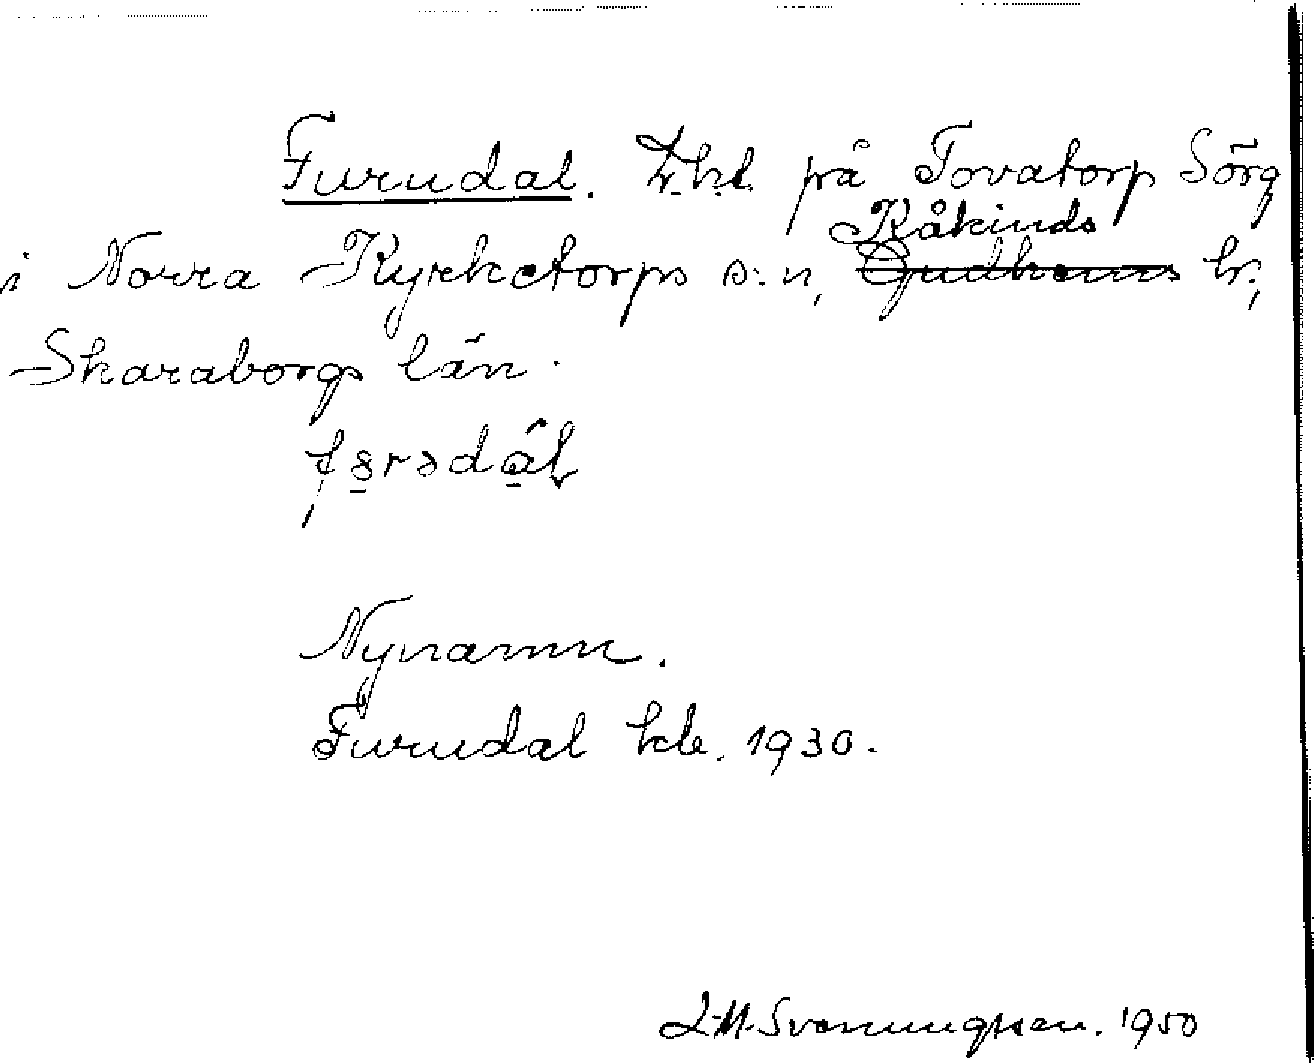 Furudal. Lht på Tovatorp Sörg
Kåkinds
i Norra Kyrketorps s:n, Gudhems hr,
Skaraborgs län.
Nynamn.
Furudal kde. 1930.
L-M-Svenungsson. 1950